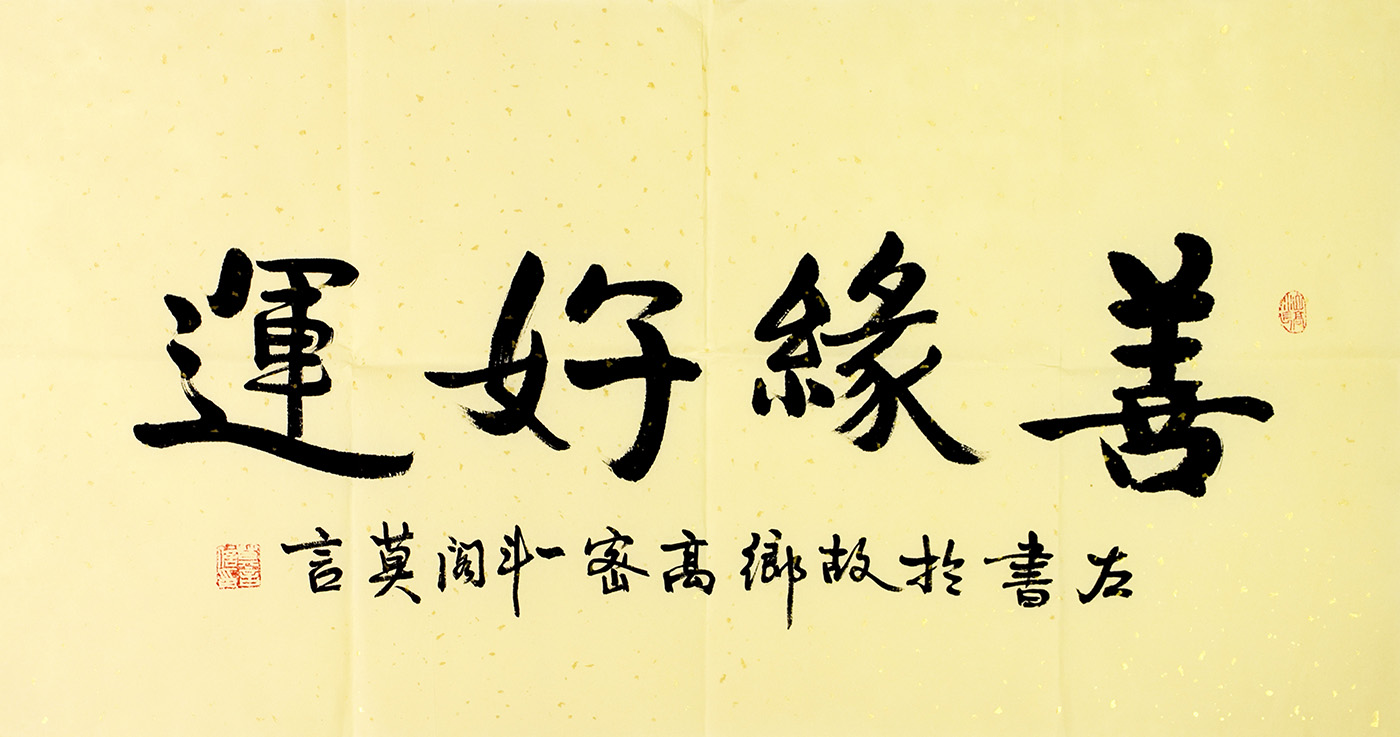 善緣好運
左書於故鄉高密一斗閣莫言